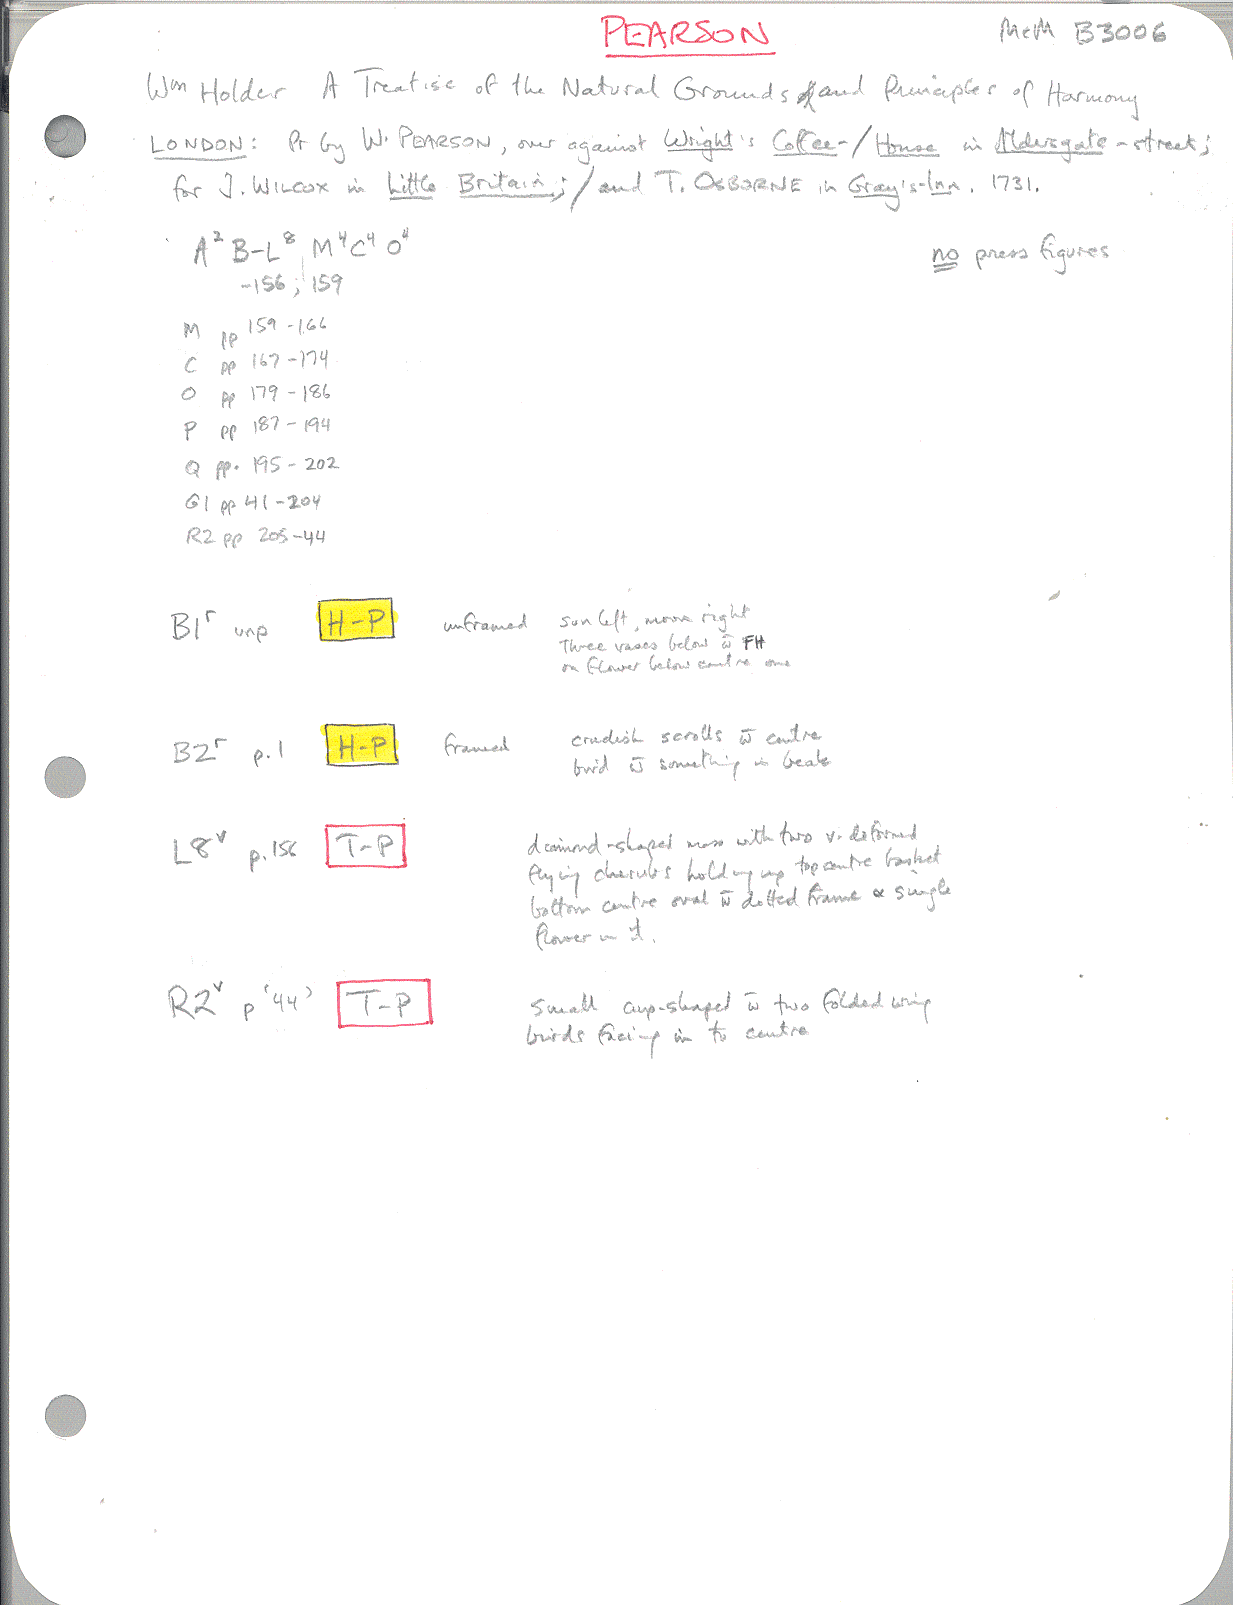 PEARSON
McM B3006
Wm Holder A Treatise of the Natural Grounds and Principles of Harmony
LONDON: Pr by W. PEARSON, over against Wright's Coffee-/House in Aldersgate-street;
for J. WILCOX in Little Britain;/and T. OSBORNE in Gray's-Inn. 1731.
A² B-L⁸ M⁴C⁴O⁴
no press figures
-156; 159
M pp 159-166
C pp 167-174
O pp 179-186
P pp 187-194
Q pp. 195-202
G1 pp 41-204
R2 pp 205-44
B1r unp H-P unframed sun left, moon right
Three vases below w̄ FH
on flower below centre one
B2r p.1 H-P framed crudish scrolls w̄ centre
bird w̄ something in beak
L8v p.156 T-P diamond-shaped mass with two v. deformed
flying cherubs holding up top centre basket
bottom centre oval w̄ dotted frame & single
flower in it.
R2v p '44' T-P small cup-shaped w̄ two folded wing
birds facing in to centre